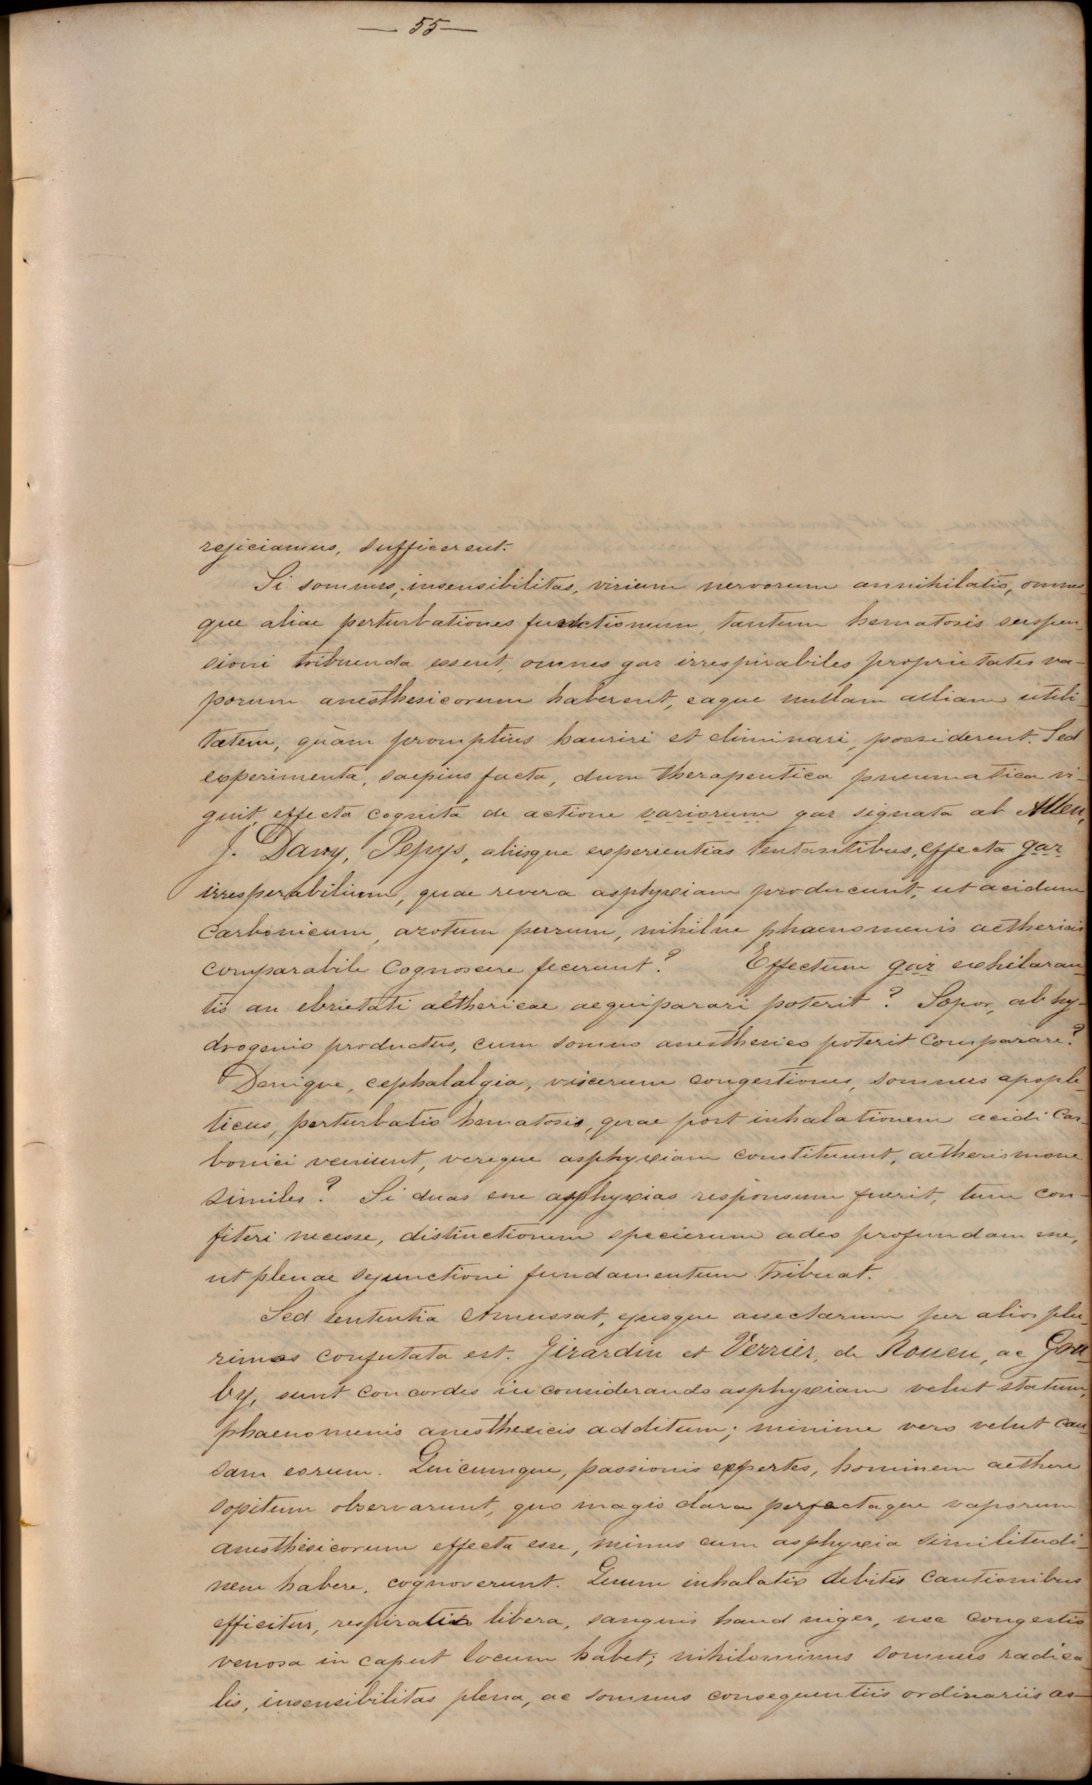 — 55 —
rejiciamus, sufficerent.
Si somnus, insensibilitas, virium nervorum annihilatio, omnes
que aliae perturbationes functionum, tantum hematosis suspen-
sioni tribuenda essent, omnes gaz irrespirabiles proprietates va-
porum anesthesicorum haberent, eaque nullam aliam utili-
tatem, quàm promptius hauriri et eliminari, possiderent. Sed
experimenta, saepius facta, dum therapeutica pneumatica vi-
guit, effecta cognita de actione variorum gaz signata ab Allen,
J. Davy, Pepys, aliisque experientias tentantibus, effecta gaz
irresperabilium, quae revera asphyxiam producunt, ut acidum
carbonicum, azotum purum, nihilne phaenomenis aethericis
comparabile cognoscere fecerunt? Effectum gaz exhilaran-
tis an ebrietati aethericae aequiparari poterit? Sopor, ab hy-
drogenio productus, cum somno anesthesico poterit comparare?
Denique, cephalalgia, viscerum congestiones, somnus apople-
ticus, perturbatio hematosis, quae post inhalationem acidi car-
bonici veniunt, vereque asphyxiam constituunt, aetherismone
similes? Si duas esse asphyxias responsum fuerit, tum con-
fiteri necesse, distinctionem specierum adeo profundam esse,
ut plenae sejunctioni fundamentum tribuat.
Sed sententia Amussat, ejusque assectarum per alios plu-
rimos confutata est. Girardin et Verrier, de Rouen, ac Grou
by, sunt concordes in considerando asphyxiam velut statum,
phaenomenis anesthesicis additum; minime vero velut cau
sam eorum. Quicumque, passionis expertes, hominem aethere
sopitum observarunt, quo magis clara perfectaque vaporum
anesthesicorum effecta esse, minus cum asphyxia similitudi-
nem habere, cognoverunt. Quum inhalatio debitis cautionibus
efficitur, respiratio libera, sanguis haud niger, nec congestio
venosa in caput locum habet; nihilominus somnus radica
lis, insensibilitas plena, ac somnus consequentiis ordinariis as-